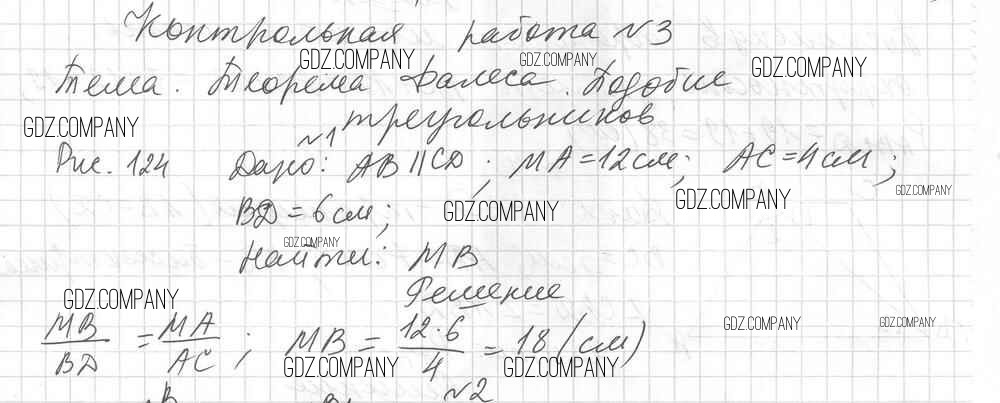 Контрольная работа №3
GDZ.COMPANY GDZ.COMPANY GDZ.COMPANY
Тема. Теорема Фалеса. Подобие
треугольников
GDZ.COMPANY
№1
Рис. 124 Дано: AB || CD; MA = 12 см; AC = 4 см;
GDZ.COMPANY GDZ.COMPANY
BD = 6 см; GDZ.COMPANY
GDZ.COMPANY
Найти: MB
Решение
GDZ.COMPANY
MB/BD = MA/AC; MB = 12·6/4 = 18 (см)
GDZ.COMPANY GDZ.COMPANY
GDZ.COMPANY GDZ.COMPANY
№2